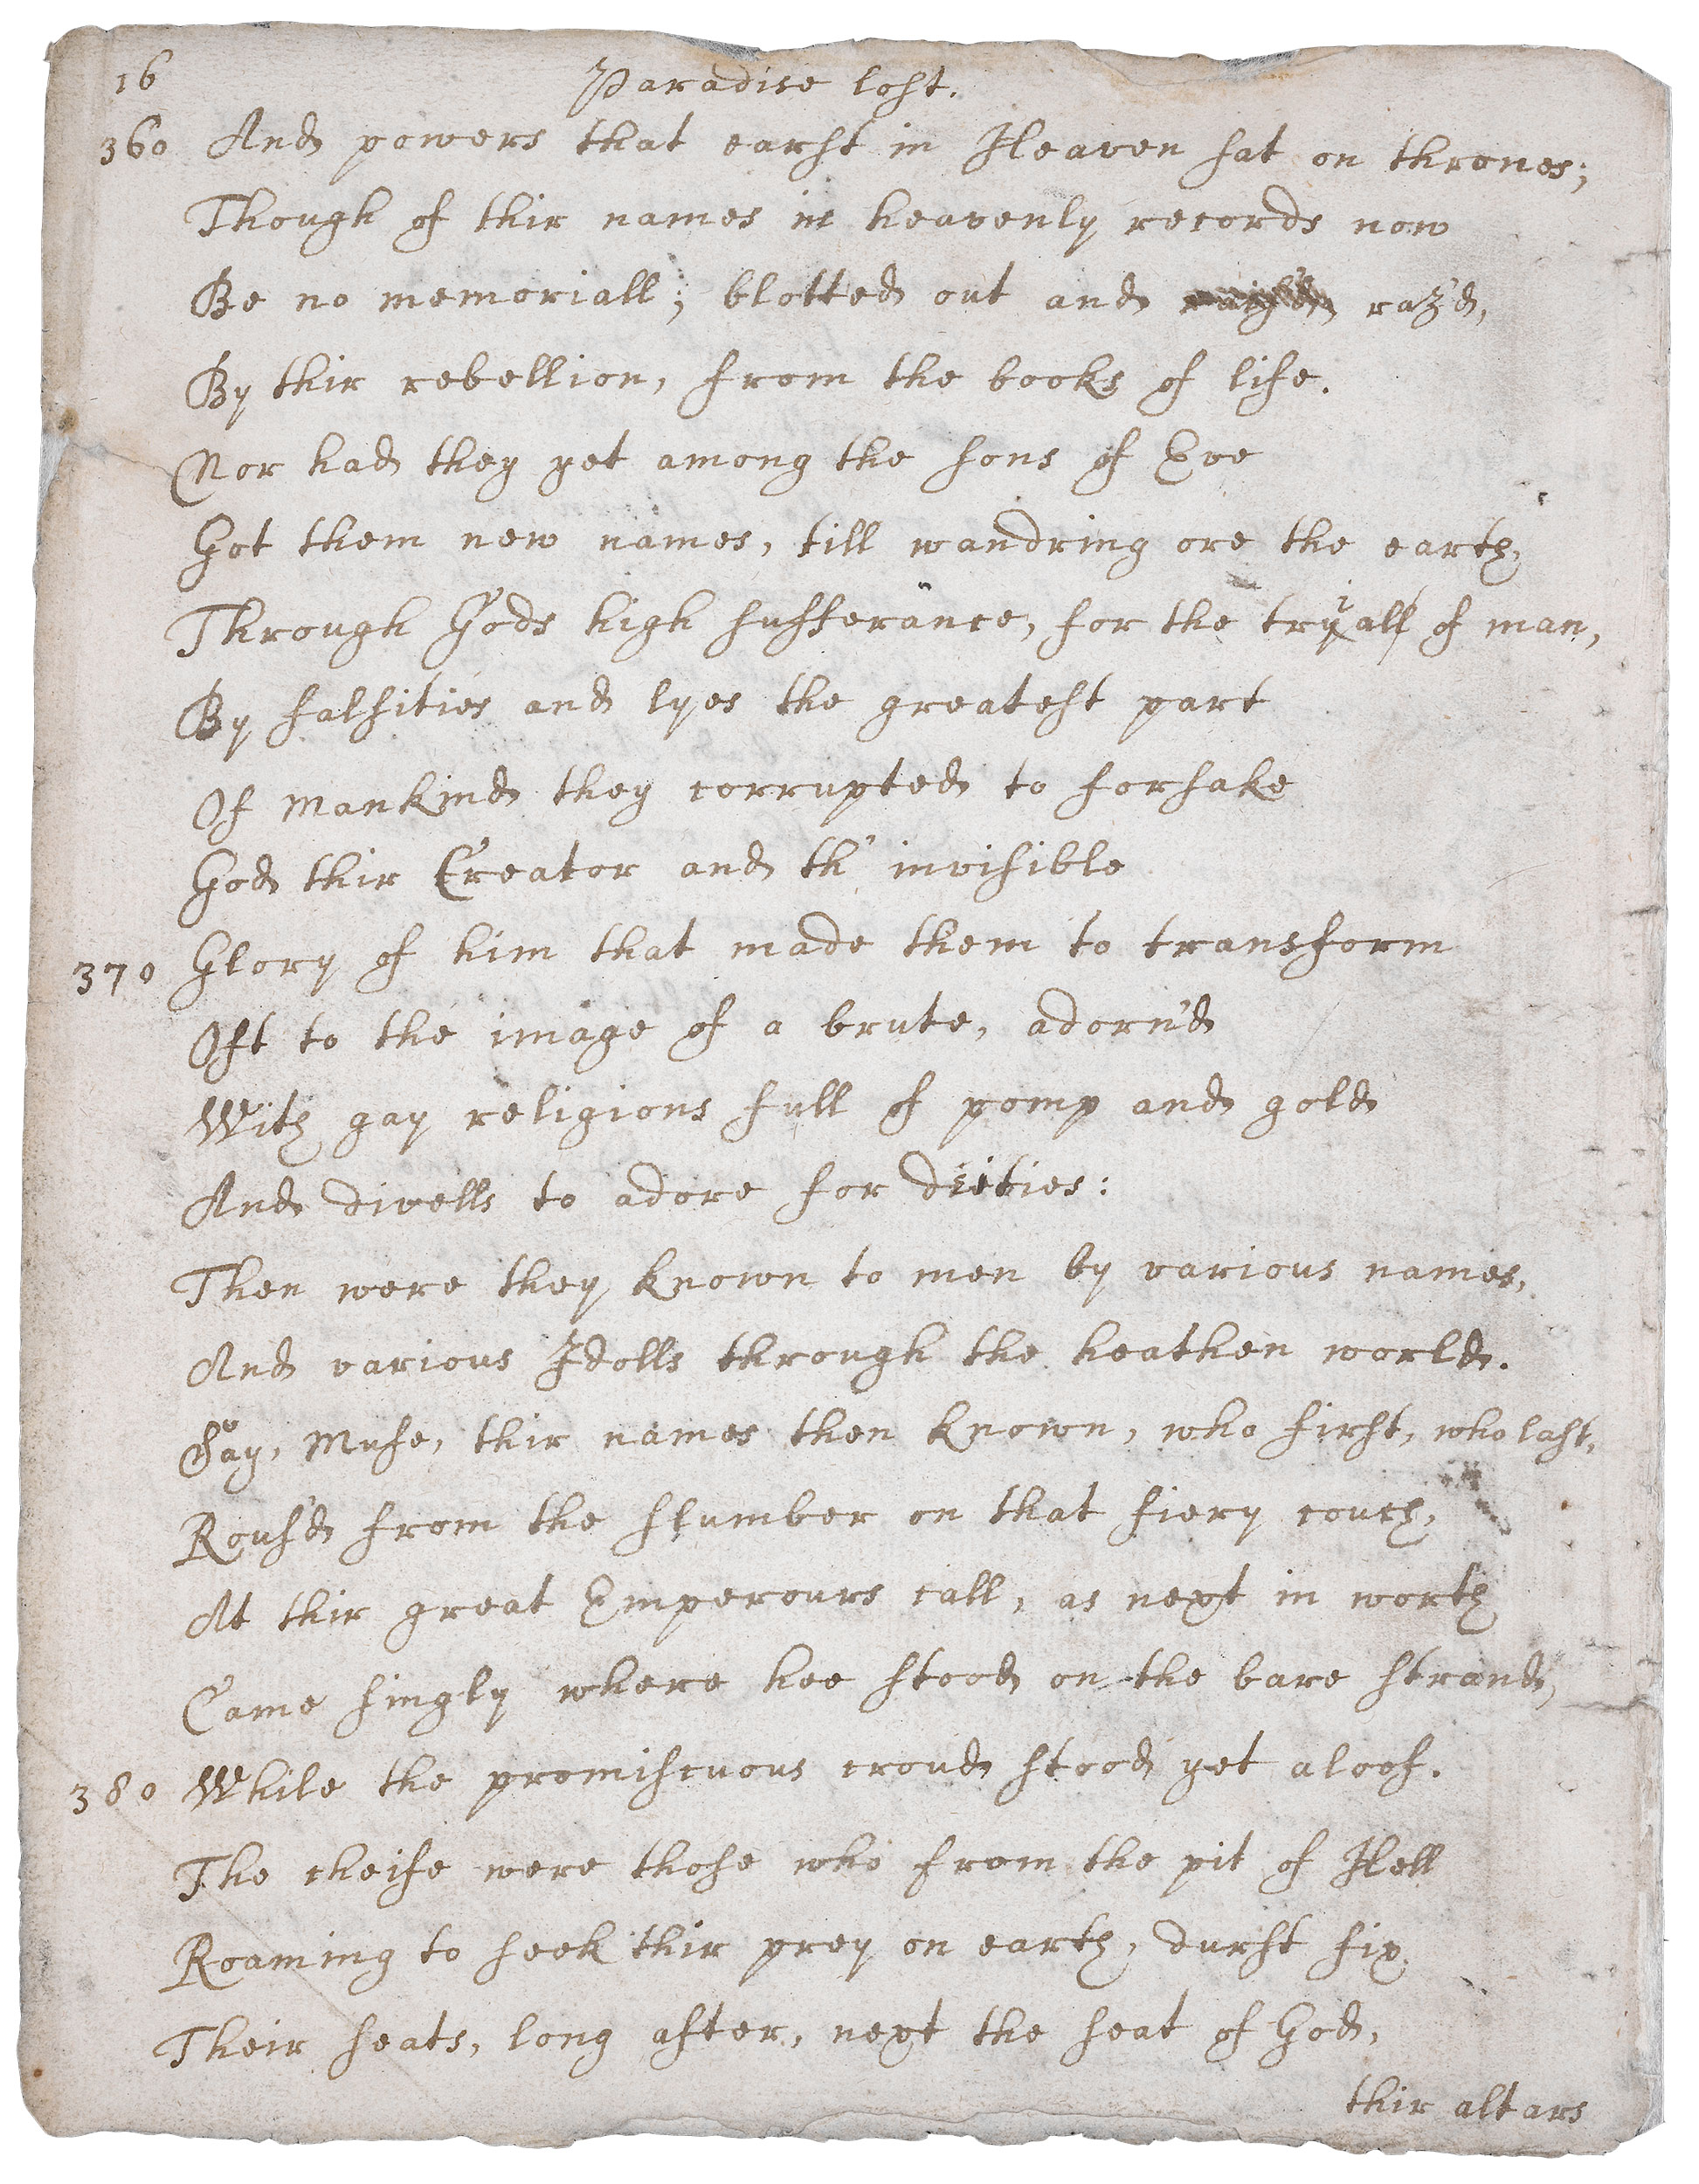 16
Paradise lost.
360 And powers that earst in Heaven sat on thrones;
Though of thir names in heavenly records now
Be no memoriall; blotted out and raz'd,
By thir rebellion, from the books of life.
Nor had they yet among the sons of Eve
Got them new names, till wandring ore the earth,
Through Gods high sufferance, for the tryall of man,
By falsities and lyes the greatest part
Of Mankind they corrupted to forsake
God thir Creator and th' invisible
370 Glory of him that made them to transform
Oft to the image of a brute, adorn'd
With gay religions full of pomp and gold
And divells to adore for dieties:
Then were they known to men by various names,
And various Idolls through the heathen world.
Say, Muse, thir names then known, who first, who last,
Rous'd from the slumber on that fiery couch,
At thir great Emperours call, as next in worth
Came singly where hee stood on the bare strand,
380 While the promiscuous croud stood yet aloof.
The cheife were those who from the pit of Hell
Roaming to seek thir prey on earth, durst fix
Their seats, long after, next the seat of God,
thir altars